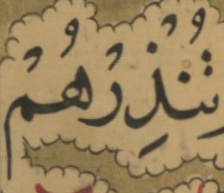 تُنْذِرْهُمْ